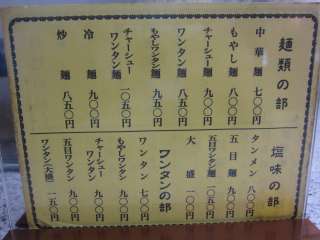 麺類の部
中華麺 七〇〇円
もやし麺 八〇〇円
チャーシュー麺 九〇〇円
ワンタン麺 九〇〇円
もやしワンタン麺 九五〇円
チャーシューワンタン麺 一〇五〇円
冷麺 九〇〇円
炒麺 八五〇円
塩味の部
タンメン 八〇〇円
五目麺 九〇〇円
五目ワンタン麺
大盛 一〇〇円
ワンタンの部
ワンタン 七〇〇円
もやしワンタン
チャーシューワンタン 九〇〇円
五目ワンタン 九〇〇円
ワンタン(大盛) 一五〇円